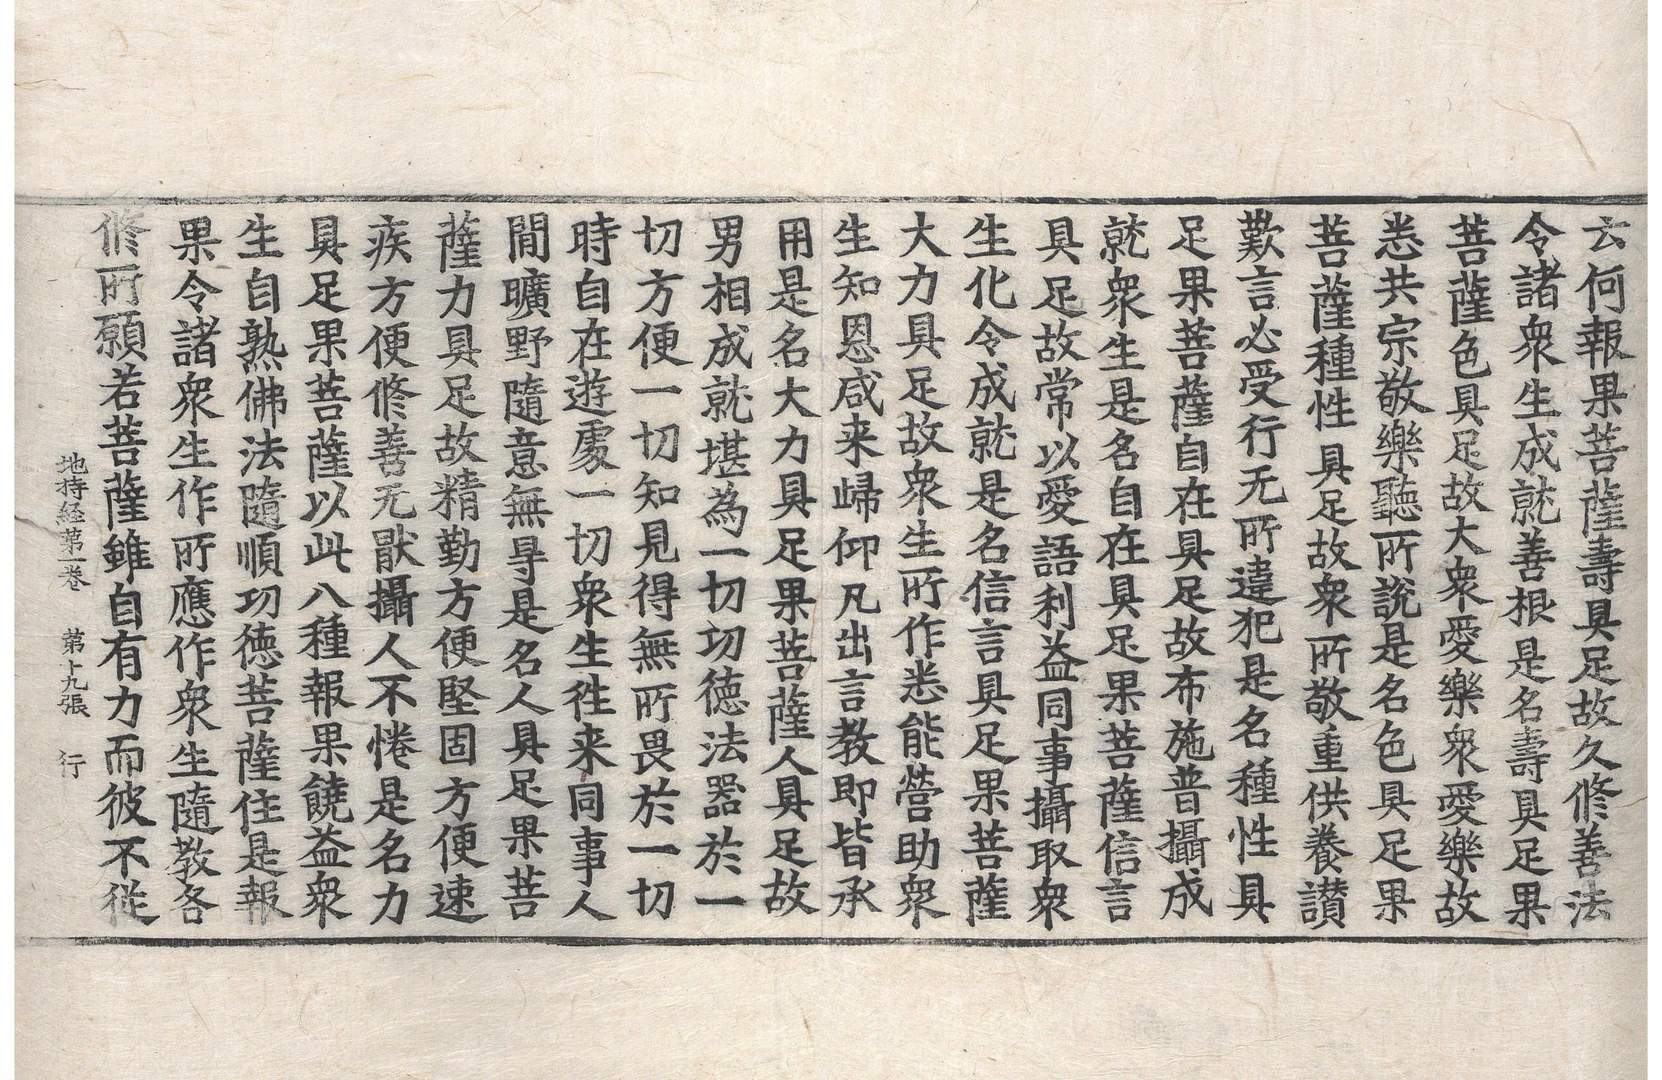 云何報果菩薩壽具足故久修善法
令諸衆生成就善根是名壽具足果
菩薩色具足故大衆愛樂衆愛樂故
悉共宗敬樂聽所說是名色具足果
菩薩種性具足故衆所敬重供養讃
歎言必受行无所違犯是名種性具
足果菩薩自在具足故布施普攝成
就衆生是名自在具足果菩薩信言
具足故常以愛語利益同事攝取衆
生化令成就是名信言具足果菩薩
大力具足故衆生所作悉能營助衆
生知恩咸来歸仰凡出言教即皆承
用是名大力具足果菩薩人具足故
男相成就堪為一切功徳法器於一
切方便一切知見得無所畏於一切
時自在遊處一切衆生徃来同事人
間曠野隨意無㝵是名人具足果菩
薩力具足故精勤方便堅固方便速
疾方便修善无猒攝人不惓是名力
具足果菩薩以此八種報果饒益衆
生自熟佛法隨順功徳菩薩住是報
果令諸衆生作所應作衆生隨教各
修所願若菩薩雖自有力而彼不従
地持経第一巻　第十九張　行